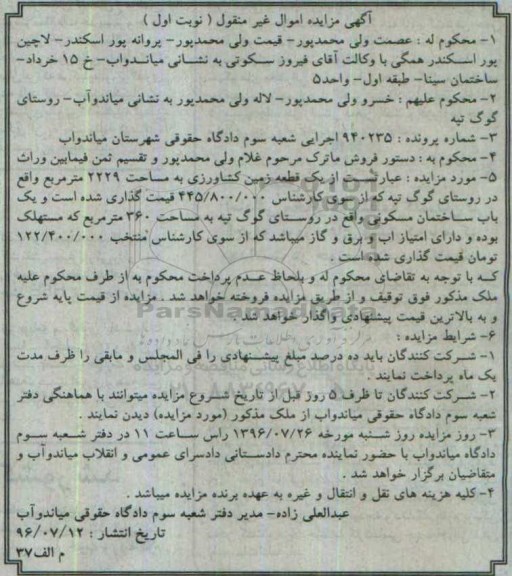 آگهی مزایده اموال غیر منقول ( نوبت اول )
۱- محکوم له : عصمت ولی محمدپور- قیمت ولی محمدپور- پروانه پور اسکندر- لاچین
پور اسکندر همگی با وکالت آقای فیروز سکوتی به نشانی میاندواب- خ ۱۵ خرداد-
ساختمان سینا- طبقه اول- واحد۵
۲- محکوم علیهم : خسرو ولی محمدپور- لاله ولی محمدپور به نشانی میاندوآب- روستای
گوگ تپه
۳- شماره پرونده : ۹۴۰۲۳۵ اجرایی شعبه سوم دادگاه حقوقی شهرستان میاندواب
۴- محکوم به : دستور فروش ماترک مرحوم غلام ولی محمدپور و تقسیم ثمن فیمابین وراث
۵- مورد مزایده : عبارتست از یک قطعه زمین کشاورزی به مساحت ۲۲۲۹ مترمربع واقع
در روستای گوگ تپه که از سوی کارشناس ۴۴۵/۸۰۰/۰۰۰ قیمت گذاری شده است و یک
باب ساختمان مسکونی واقع در روستای گوگ تپه به مساحت ۳۶۰ مترمربع که مستهلک
بوده و دارای امتیاز اب و برق و گاز میباشد که از سوی کارشناس منتخب ۱۲۲/۴۰۰/۰۰۰
تومان قیمت گذاری شده است .
که با توجه به تقاضای محکوم له و بلحاظ عدم پرداخت محکوم به از طرف محکوم علیه
ملک مذکور فوق توقیف و از طریق مزایده فروخته خواهد شد . مزایده از قیمت پایه شروع
و به بالاترین قیمت پیشنهادی واگذار خواهد شد .
ParsNamadData
۶- شرایط مزایده :
۱- شرکت کنندگان باید ده درصد مبلغ پیشنهادی را فی المجلس و مابقی را ظرف مدت
یک ماه پرداخت نمایند .
۲- شرکت کنندگان تا ظرف ۵ روز قبل از تاریخ شروع مزایده میتوانند با هماهنگی دفتر
شعبه سوم دادگاه حقوقی میاندواب از ملک مذکور (مورد مزایده) دیدن نمایند .
۳- روز مزایده روز شنبه مورخه ۱۳۹۶/۰۷/۲۶ راس ساعت ۱۱ در دفتر شعبه سوم
دادگاه میاندواب با حضور نماینده محترم دادستانی دادسرای عمومی و انقلاب میاندوآب و
متقاضیان برگزار خواهد شد .
۴- کلیه هزینه های نقل و انتقال و غیره به عهده برنده مزایده میباشد .
عبدالعلی زاده- مدیر دفتر شعبه سوم دادگاه حقوقی میاندوآب
تاریخ انتشار : ۹۶/۰۷/۱۲
م الف۳۷